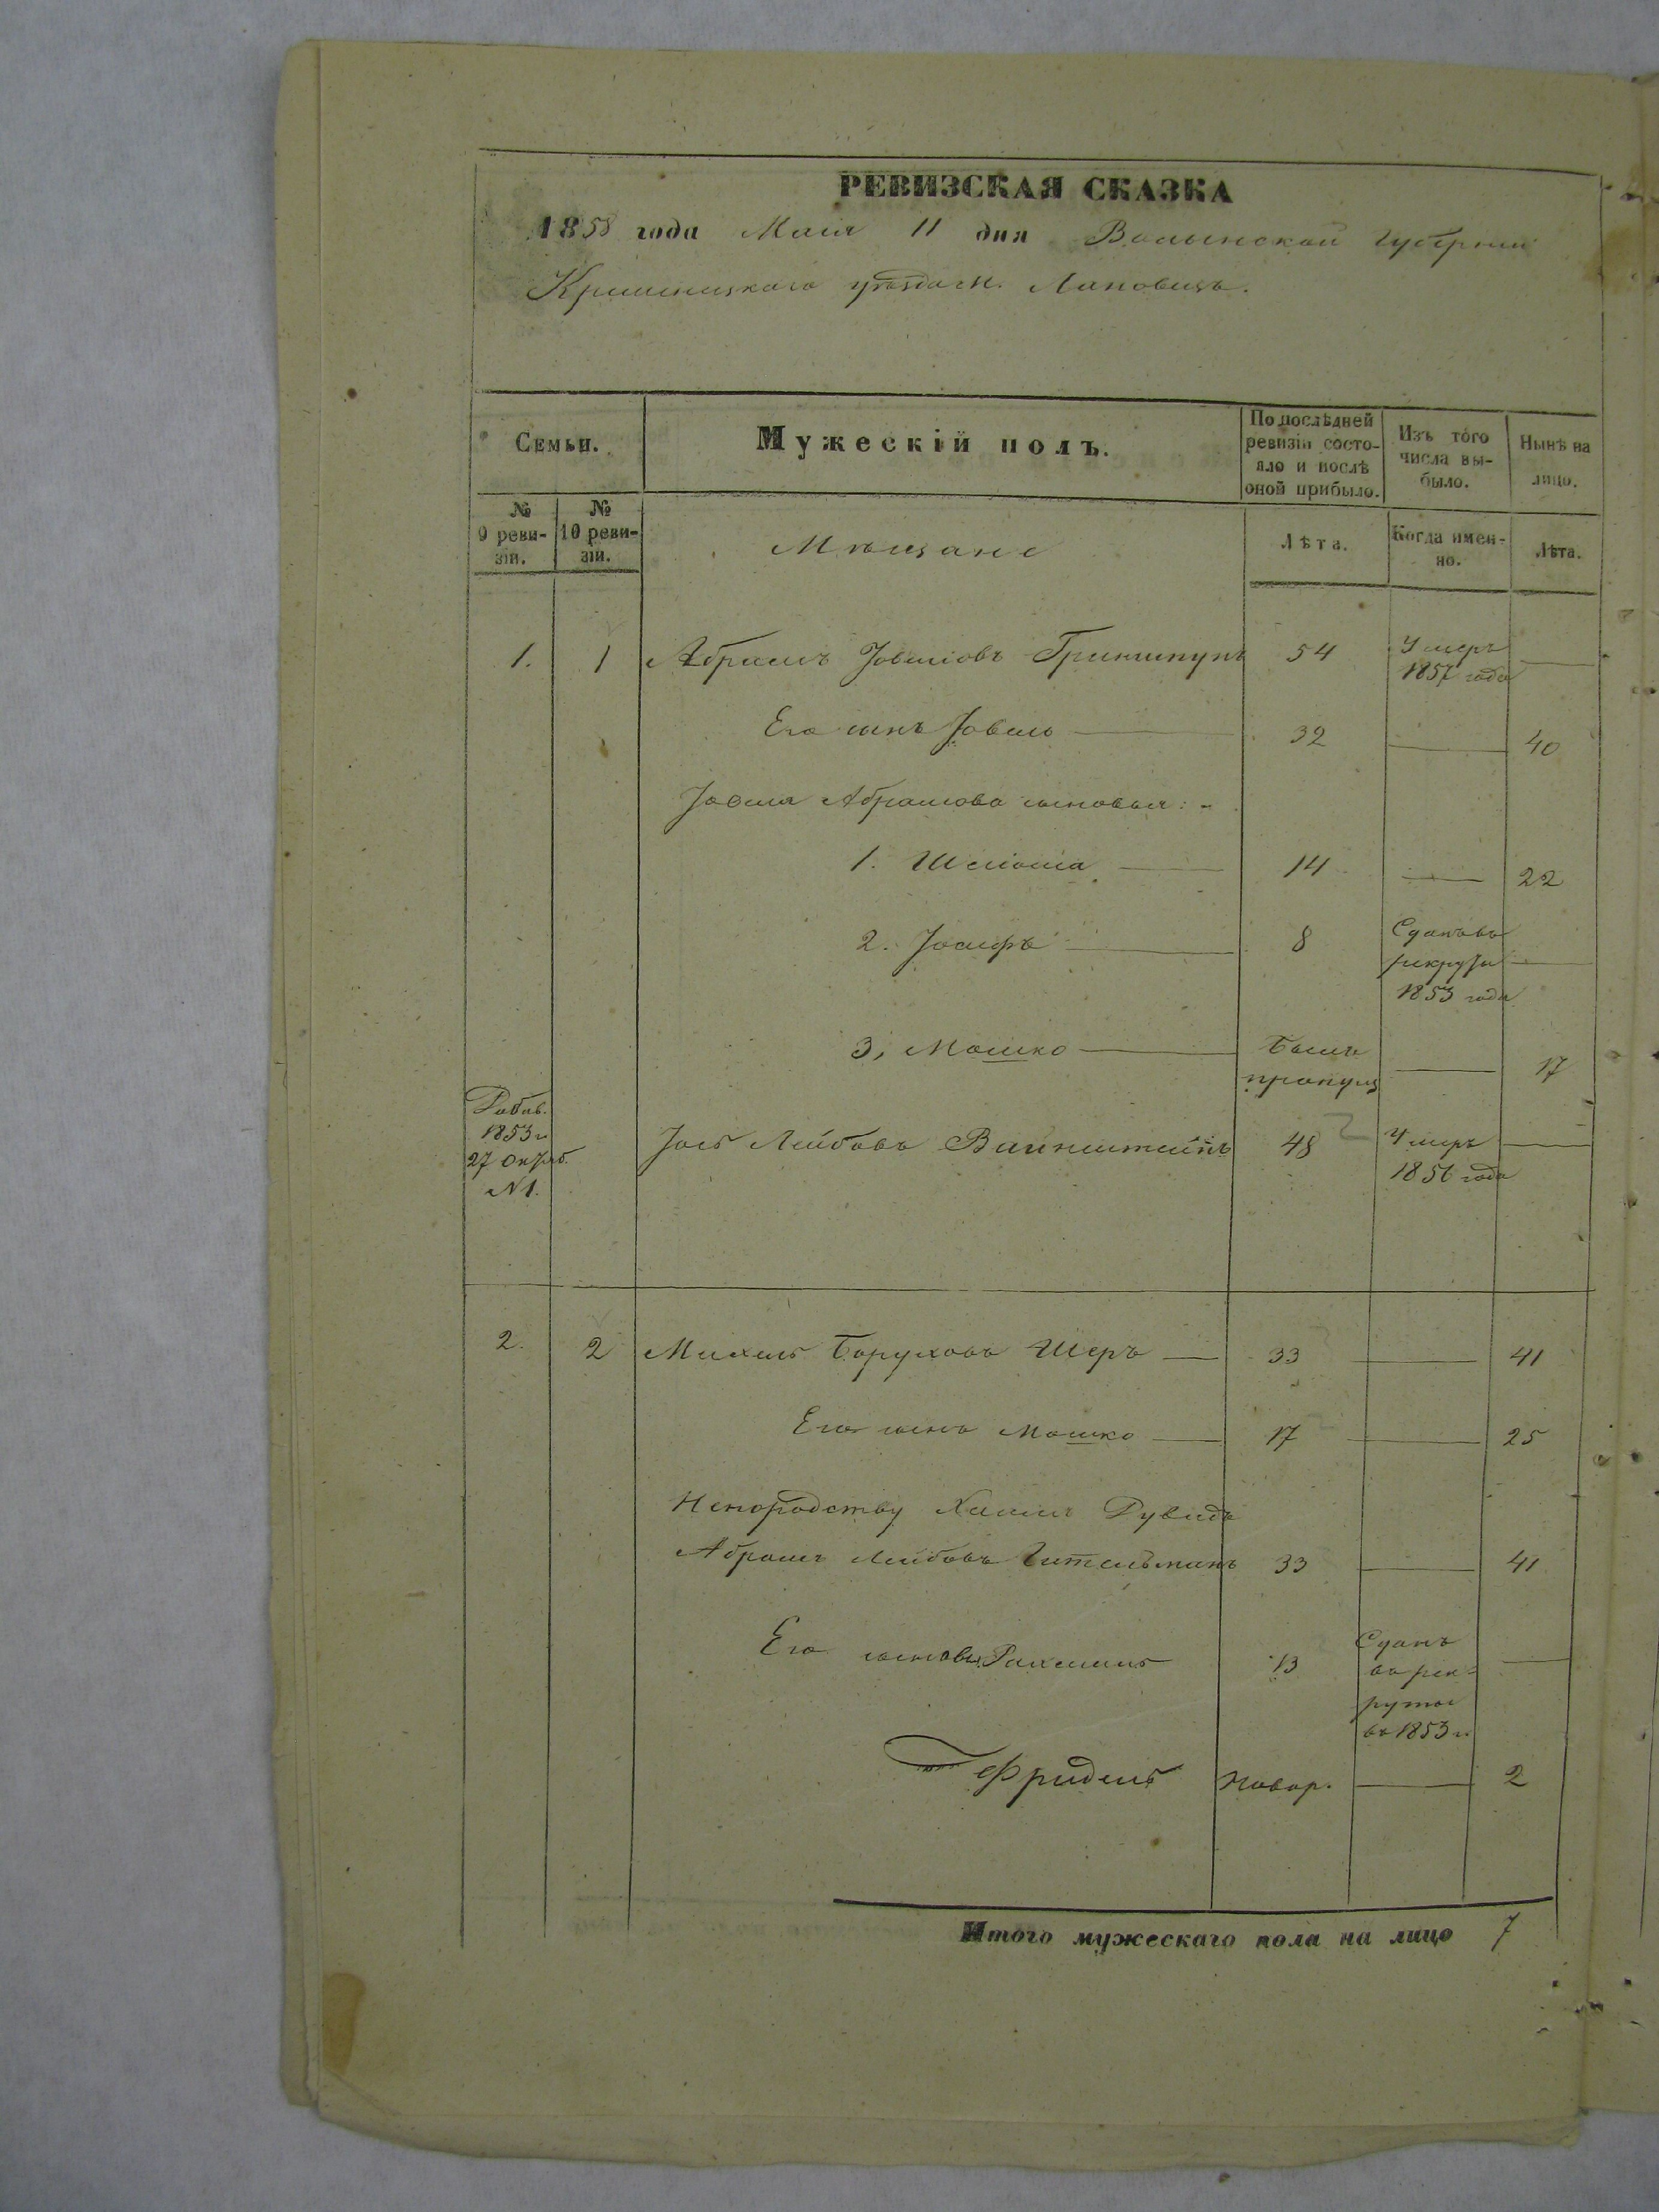 РЕВИЗСКАЯ СКАЗКА
1858 года Мая 11 дня Волынской Губернии
Кременецкаго уѣзда м. Лановецъ.
Семьи.
Мужескій полъ.
По послѣдней ревизіи состо-
яло и послѣ оной прибыло.
Изъ того числа вы-
было.
Нынѣ на лицо.
№ 9 реви-
зіи.
№ 10 реви-
зіи.
Мѣщане
Лѣта.
Когда имен-
но.
Лѣта.
1. 1 Абрамъ Іовелiовъ 54 Умеръ
1857 года
Его сынъ Іовель 32 40
Іовеля Абрамова сыновья:
1. 14 22
2. Іосифъ 8 Сданъ въ
рекруты
1853 года
3, Мошко Былъ
пропущ 17
1853 г.
27 Октяб.
N 1.
Іось Лейбовъ Вайнштейнъ 48 Умеръ
1856 года
2. 2 Михель Боруховъ Шеръ 33 41
Его сынъ Мошко 17 25
Абрамъ Лейбовъ Гительманъ 33 41
Его сыновья 13 Сданъ
въ рек-
руты
въ 1853 г.
Фридель Новор. 2
Итого мужескаго пола на лицо 7